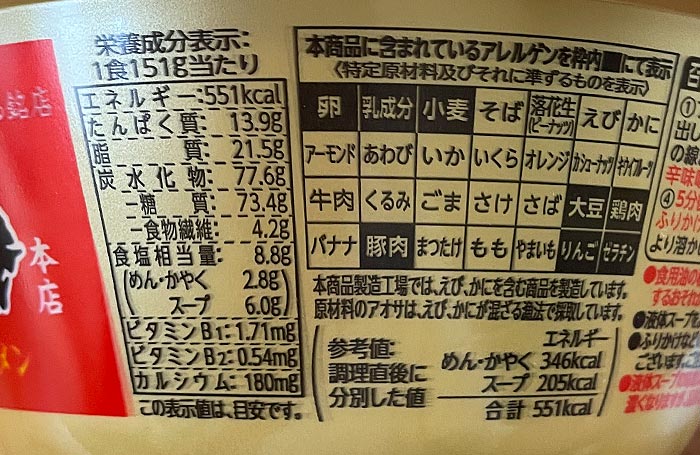 栄養成分表示:
1食151g当たり
エネルギー:551kcal
たんぱく質: 13.9g
脂質: 21.5g
炭水化物: 77.6g
-糖質: 73.4g
-食物繊維: 4.2g
食塩相当量: 8.8g
(めん・かやく 2.8g)
(スープ 6.0g)
ビタミンB1:1.71mg
ビタミンB2:0.54mg
カルシウム:180mg
この表示値は、目安です。
本商品に含まれているアレルゲンを枠内■にて表示
〈特定原材料及びそれに準ずるものを表示〉
卵 乳成分 小麦 そば 落花生(ピーナッツ) えび かに
アーモンド あわび いか いくら オレンジ カシューナッツ キウイフルーツ
牛肉 くるみ ごま さけ さば 大豆 鶏肉
バナナ 豚肉 まつたけ もも やまいも りんご ゼラチン
本商品製造工場では、えび、かにを含む商品を製造しています。
原材料のアオサは、えび、かにが混ざる漁法で採取しています。
参考値:
調理直後に
分別した値
エネルギー
めん・かやく 346kcal
スープ 205kcal
合計 551kcal
銘店
本店
メン
出
の
辛味
④5分
ふりか
より溶か
●食用油の
するおそ
●液体スープ
●ふりかけな
ございます
●液体スープの
濃くなります